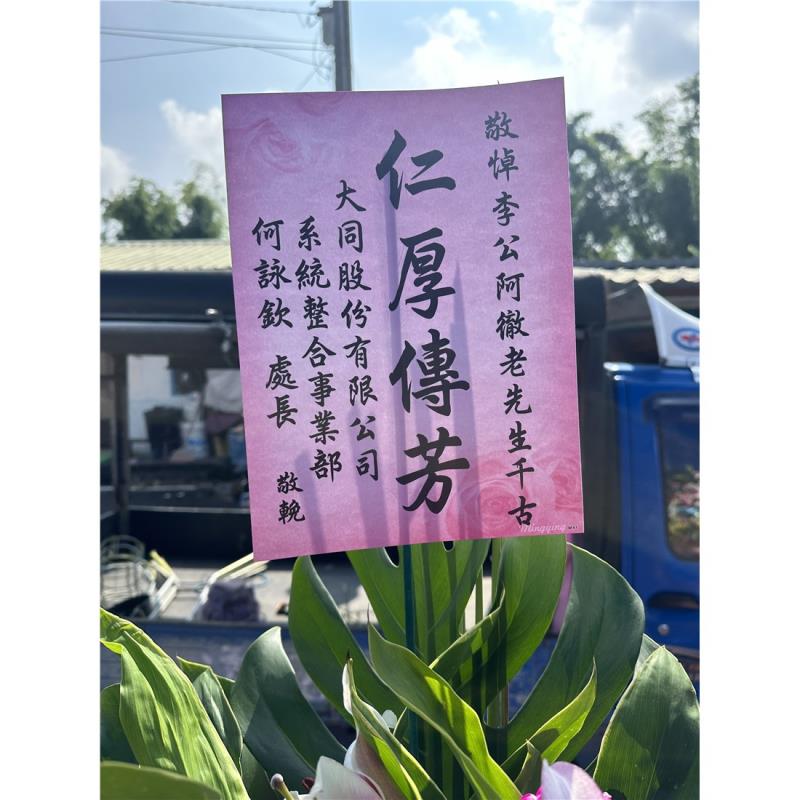 敬悼李公阿徹老先生千古
仁厚傳芳
大同股份有限公司
系統整合事業部
何詠欽 處長
敬輓
Mingying